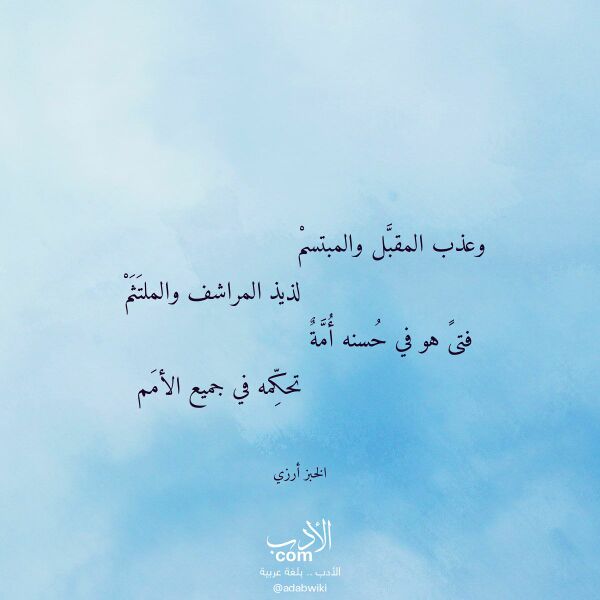 وعذب المقبَّل والمبتسمْ
لذيذ المراشف والملتَثَمْ
فتىً هو في حُسنه أُمَّةٌ
تحكِّمه في جميع الأمَم
الخبز أرزي
الأدب
com
الأدب .. بلغة عربية
@adabwiki